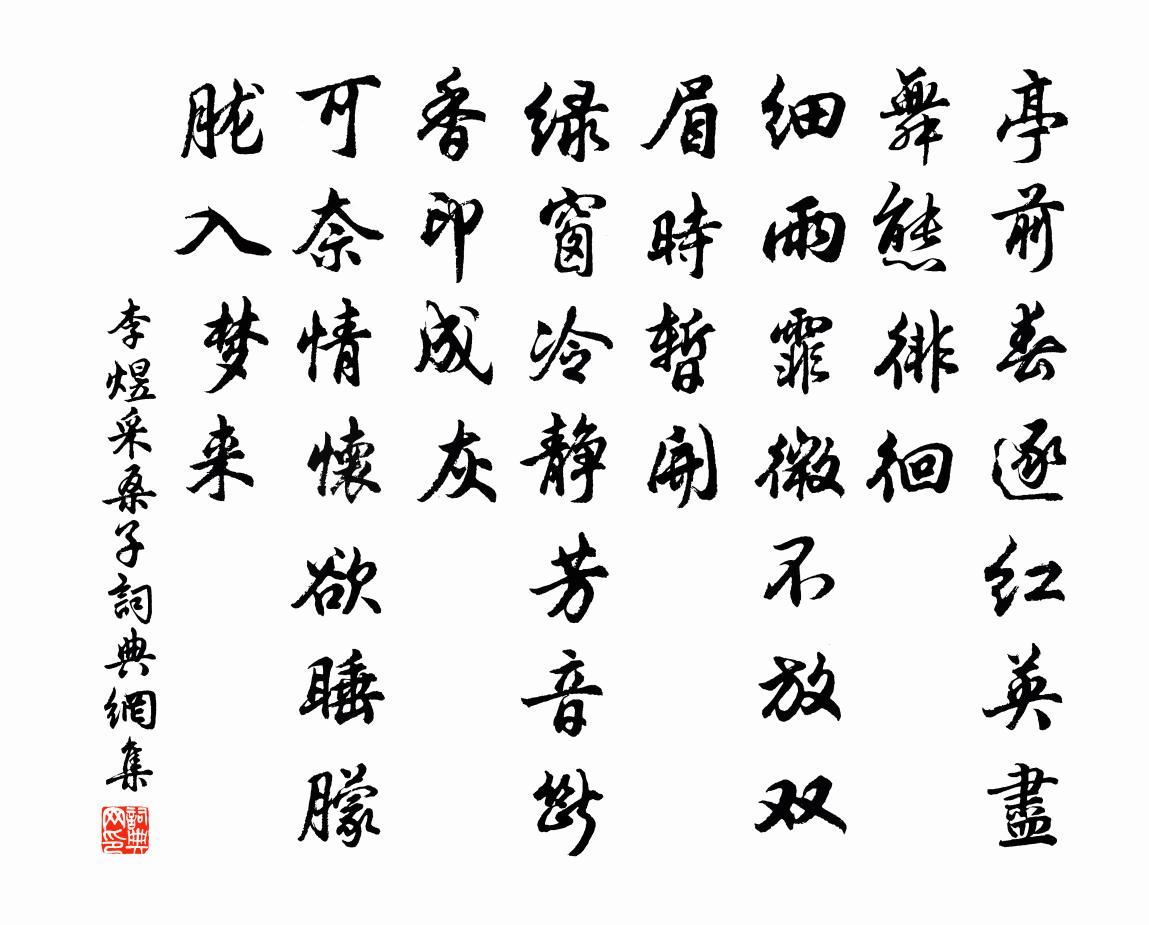 亭前春逐红英盡
舞態徘徊
细雨霏微不放双
眉時暫開
绿窗冷静芳音斷
香印成灰
可奈情懷欲睡朦
胧入梦来
李煜采桑子詞典網集
詞典网印